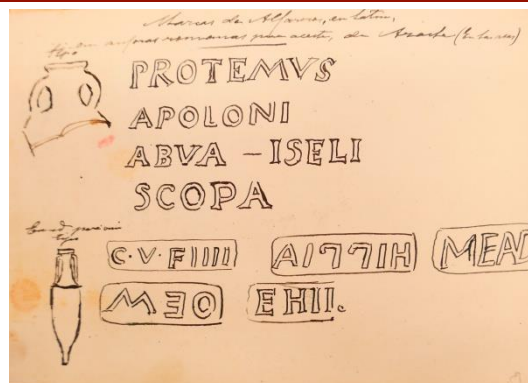 Marcas de Alfareros, en latin,
tipo en anforas romanas para aceite, de
PROTEMVS
APOLONI
ABVA - ISELI
SCOPA
tipo
C·V·FIIII AI77IH MEAD
MƎO EHII.